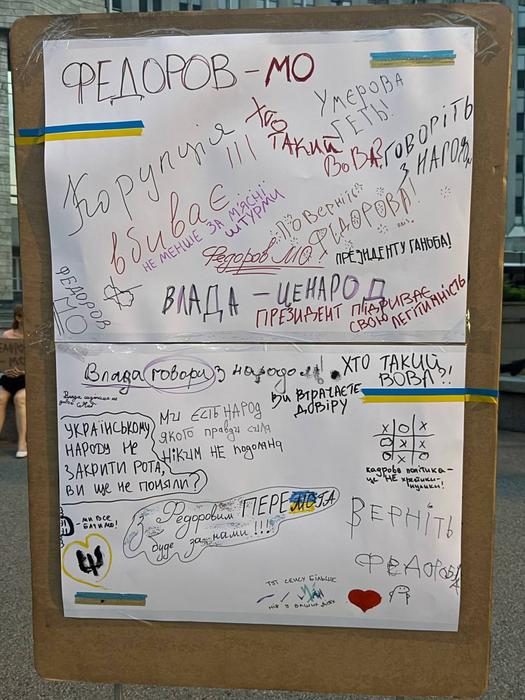 ФЕДОРОВ – МО
УМЕРОВА
ГЕТЬ!
Хто
ТАКИЙ
ВОВА?
ГОВОРІТЬ
З НАРОДОМ
Корупція !!!
вбиває
НЕ МЕНШЕ ЗА М'ЯСНІ
ШТУРМИ
ПОВЕРНІТЬ
ФЕДОРОВА!
Федоров МО!
ПРЕЗИДЕНТУ ГАНЬБА!
ФЕДОРОВ
МО
ВЛАДА – ЦЕ НАРОД
ПРЕЗИДЕНТ ПІДРИВАЄ
СВОЮ ЛЕГІТИМНІСТЬ
Влада говори з народом!
ХТО ТАКИЙ
ВОВА?!
ВИ ВТРАЧАЄТЕ
ДОВІРУ
УКРАЇНСЬКОМУ
НАРОДУ НЕ
ЗАКРИТИ РОТА,
ВИ ЩЕ НЕ ПОНЯЛИ?
МИ ЄСТЬ НАРОД
ЯКОГО правди сила
НІКИМ НЕ подолана
X O X
O X O
X O X
кадрова політика –
це НЕ хрестики-
нулики!
- МИ ВСЕ
БАЧИМО!
З Федоровим ПЕРЕМОГА
буде за нами !!!
ВЕРНІТЬ
ФЕДОРОВА
ТУТ СЕНСУ БІЛЬШЕ
НІЖ У ВАШИХ ДІЯХ